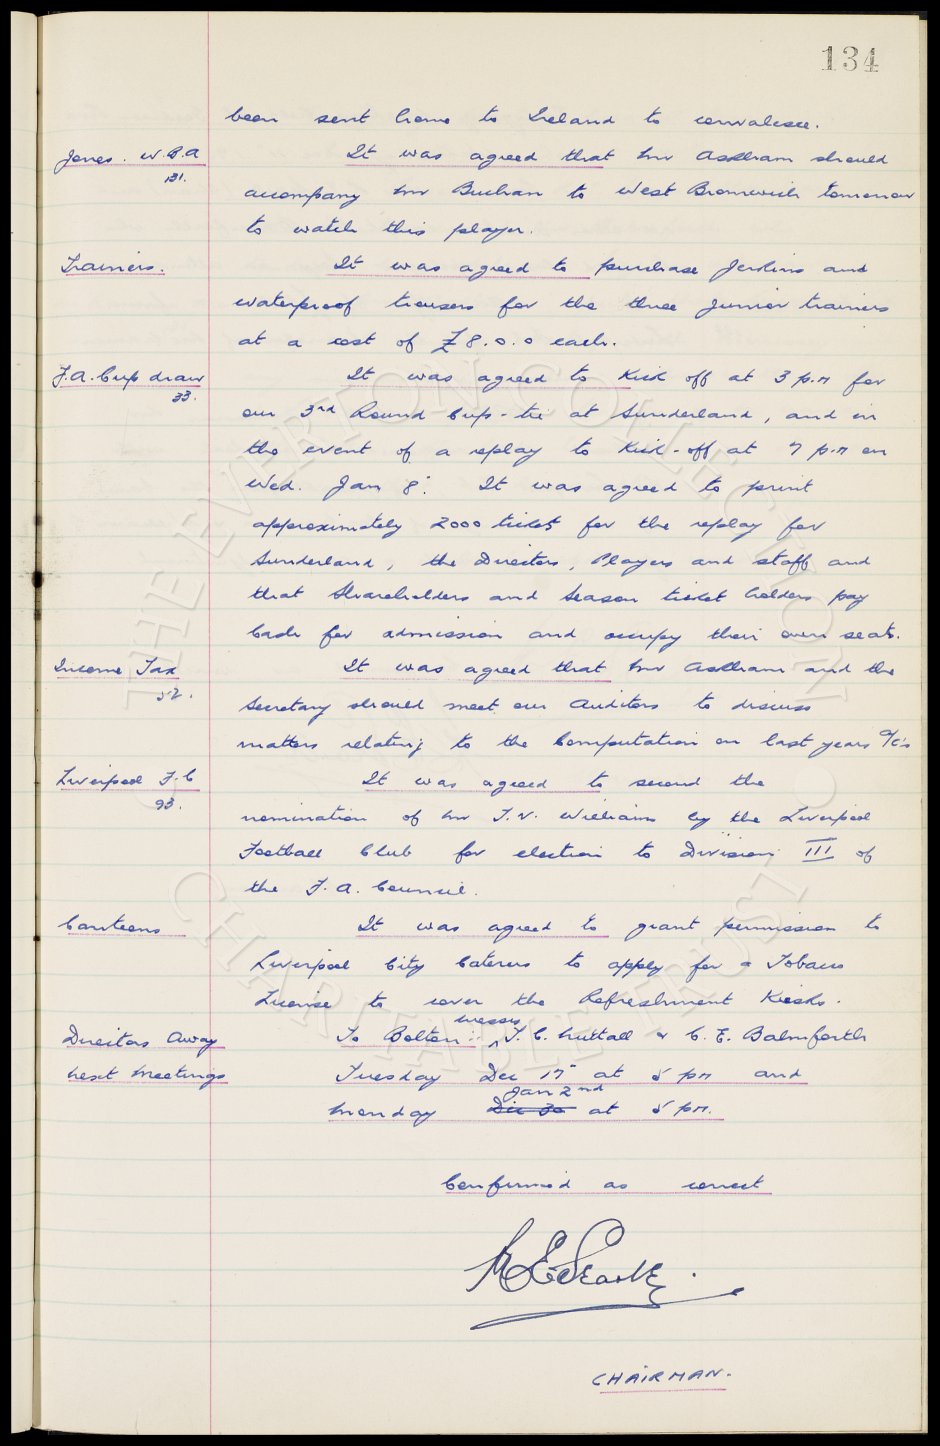 134
been sent home to Ireland to convalesce.
Jones. W.B.A It was agreed that Mr Askham should
131. accompany Mr Buchan to West Bromwich tomorrow
to watch this player.
Trainers. It was agreed to purchase Jerkins and
waterproof trousers for the three Junior trainers
at a cost of £8.0.0 each.
F.A. Cup draw It was agreed to Kick off at 3 p.m for
33. our 3rd Round Cup-tie at Sunderland, and in
the event of a replay to Kick-off at 7 p.m on
Wed. Jan 8". It was agreed to print
approximately 2000 tickets for the replay for
Sunderland, the Directors, Players and staff and
that Shareholders and Season ticket holders pay
Cash for admission and occupy their own seats.
Income Tax It was agreed that Mr Askham and the
52. Secretary should meet our Auditors to discuss
matters relating to the Computation on last years a/c's
Liverpool F.C It was agreed to second the
93. nomination of Mr T.V. Williams by the Liverpool
Football Club for election to Division III of
the F.A. Council.
Canteens It was agreed to grant permission to
Liverpool City Caterers to apply for a Tobacco
License to cover the Refreshment Kiosks.
Messrs
Directors Away To Bolton :- ^ T.C. Nuttall & C.E. Balmforth
Next Meetings Tuesday Dec 17" at 5 pm and
Jan 2nd
Monday Dec 30 at 5 pm.
Confirmed as correct
CHAIRMAN.
THE EVERTON COLLECTION
CHARITABLE TRUST